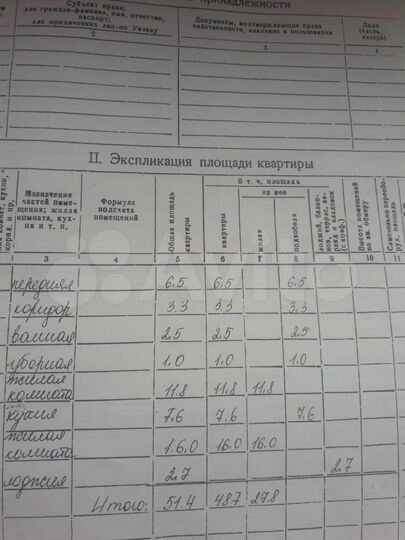 принадлежности
Субъект права:
для граждан-фамилия, имя, отчество,
паспорт;
для юридических лиц-по Уставу
Документы, подтверждающие право
собственности, владения и пользования
Доля
(часть,
литера)
2
3
4
II. Экспликация площади квартиры
Назначение
частей поме-
щения; жилая
комната, кух-
ня и т. п.
Формула
подсчета
помещений
Общая площадь
квартиры
В т. ч. площадь
квартиры
из нее
жилая
подсобная
лоджий, балко-
нов, террас, ве-
ранд и кладовок
(с коэф.)
Высота помещений
по вн. обмеру
Самовольно переобо-
руд. площадь
3 4 5 6 7 8 9 10 11
передняя 6.5 6.5 6.5
коридор 3.3 3.3 3.3
ванная 2.5 2.5 2.5
уборная 1.0 1.0 1.0
жилая
комната 11.8 11.8 11.8
кухня 7.6 7.6 7.6
жилая
комната 16.0 16.0 16.0
лоджия 2.7 2.7
Итого: 51.4 48.7 27.8